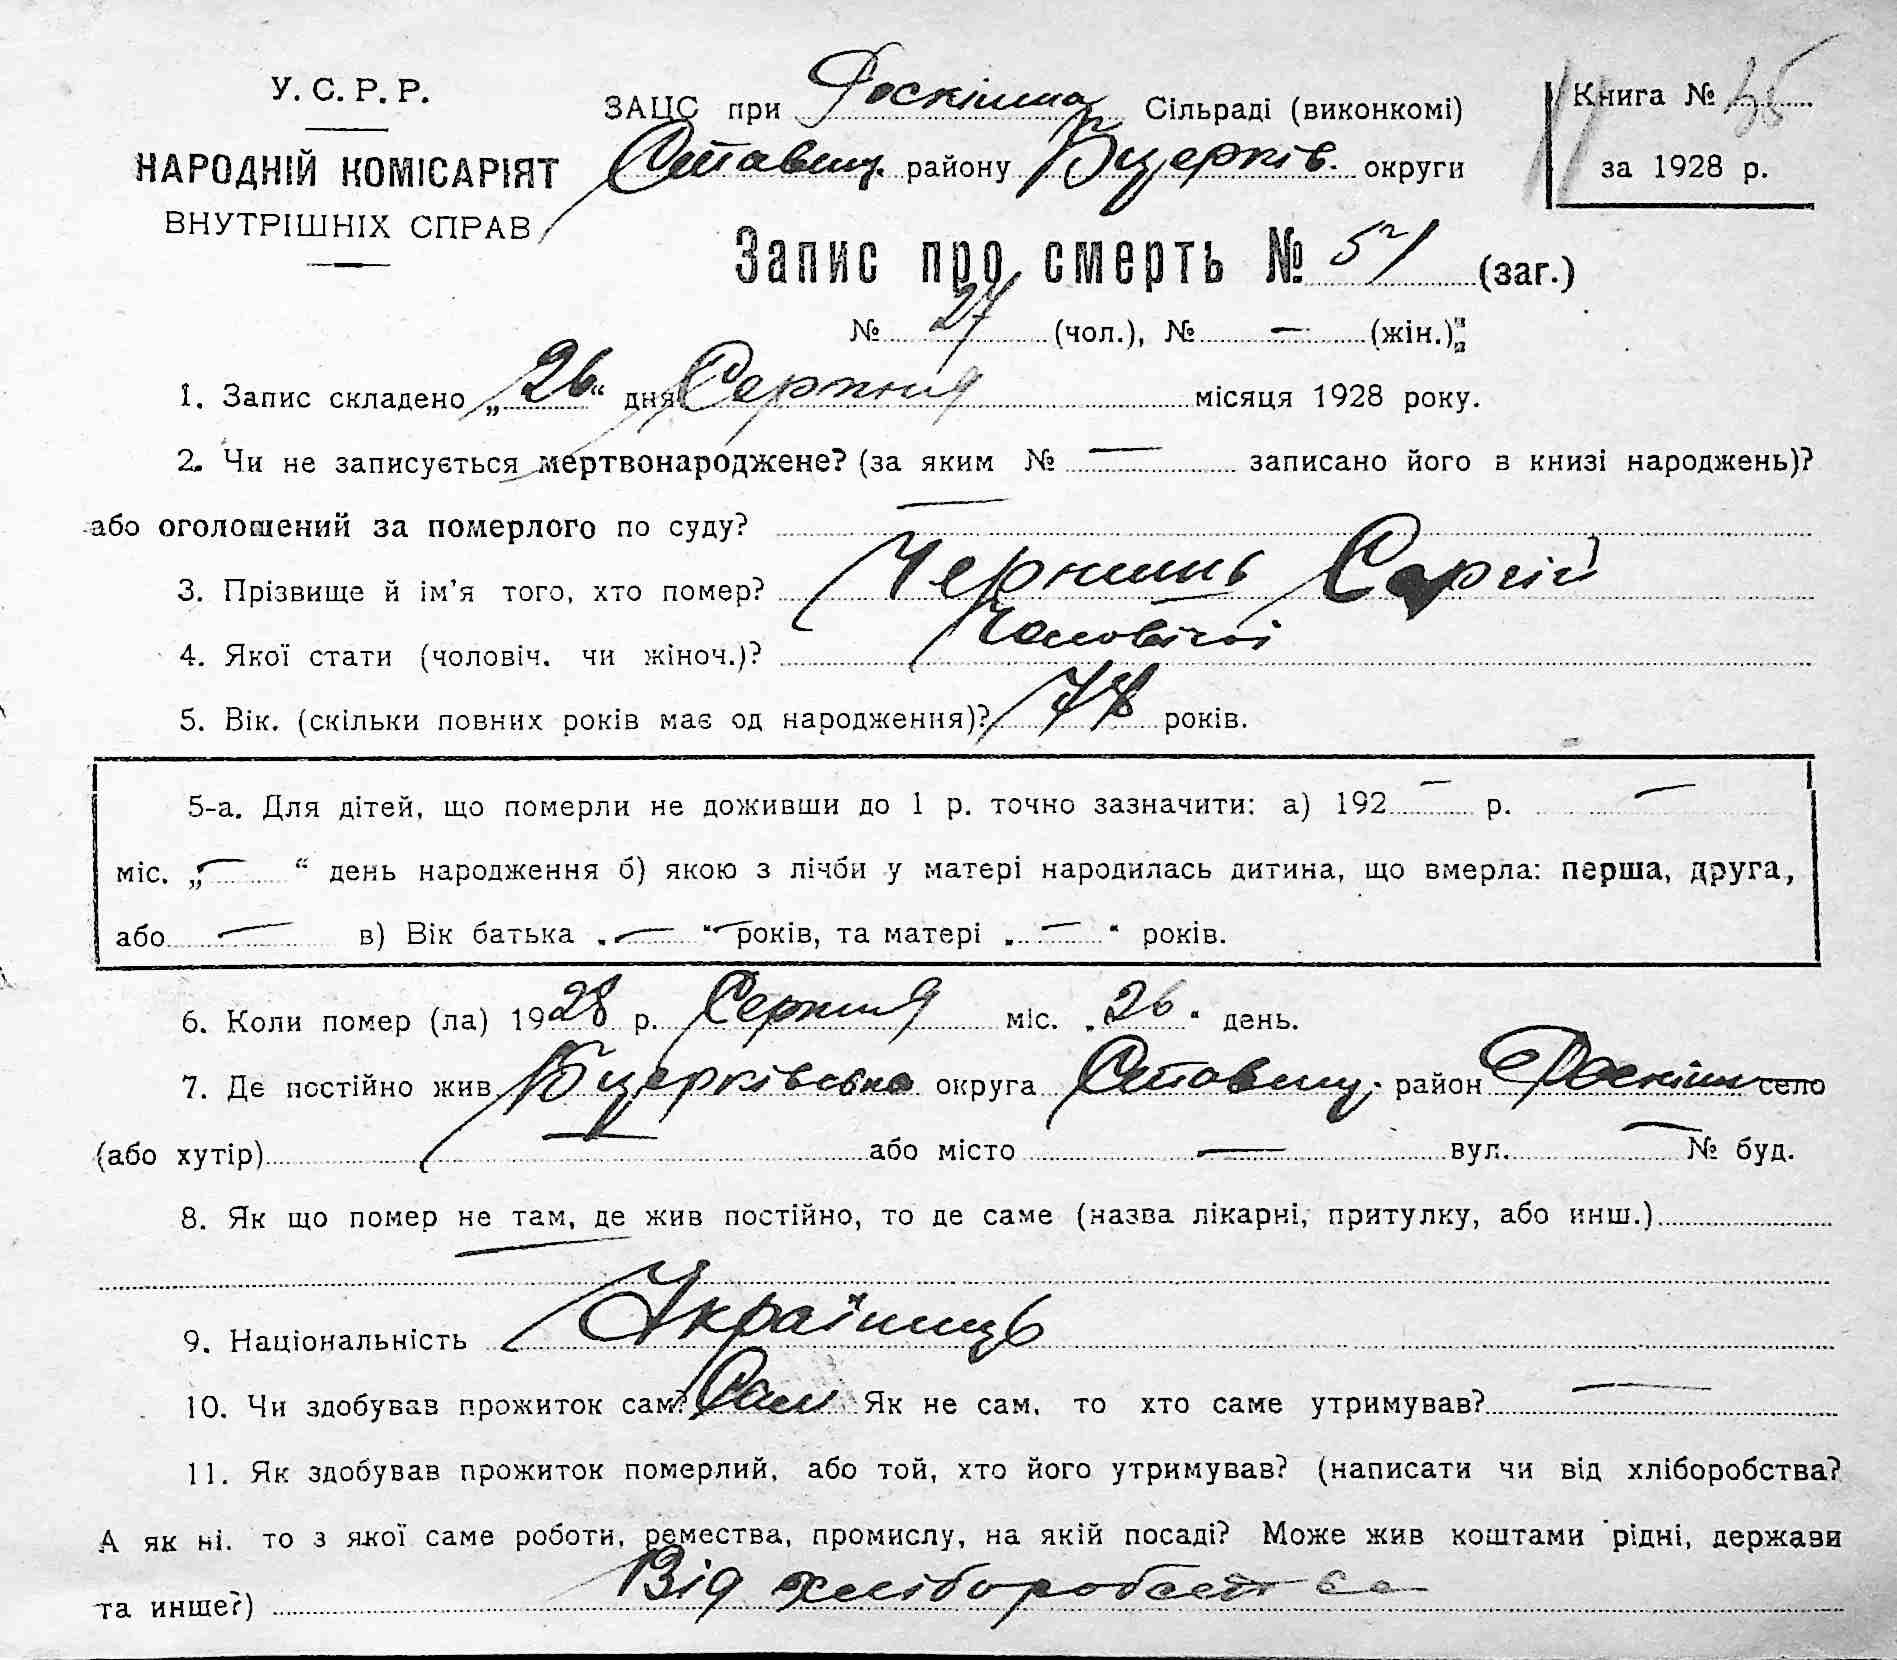 У. С. Р. Р.
НАРОДНІЙ КОМІСАРІЯТ
ВНУТРІШНІХ СПРАВ
ЗАЦС при Роскішна Сільраді (виконкомі)
Ставищ. району Бцерків. округи
Книга №
за 1928 р.
Запис про смерть № 51 (заг.)
№ 27 (чол.), № — (жін.)
1. Запис складено „26“ дня Серпня місяця 1928 року.
2. Чи не записується мертвонароджене? (за яким № — записано його в книзі народжень)?
або оголошений за померлого по суду? —
3. Прізвище й ім'я того, хто помер? Чернишь Сергій
4. Якої стати (чоловіч. чи жіноч.)? Чоловічої
5. Вік. (скільки повних років має од народження)? 78 років.
5-а. Для дітей, що померли не доживши до 1 р. точно зазначити: а) 192 — р. —
міс. „—“ день народження б) якою з лічби у матері народилась дитина, що вмерла: перша, друга,
або — в) Вік батька „—“ років, та матері „—“ років.
6. Коли помер (ла) 1928 р. Серпня міс. „26“ день.
7. Де постійно жив Бцерківська округа Ставищ. район Роскішн село
(або хутір) — або місто — вул. — № буд.
8. Як що помер не там, де жив постійно, то де саме (назва лікарні, притулку, або инш.)
—
9. Національність Українець
10. Чи здобував прожиток сам? Сам Як не сам, то хто саме утримував? —
11. Як здобував прожиток померлий, або той, хто його утримував? (написати чи від хліборобства?
А як ні, то з якої саме роботи, ремества, промислу, на якій посаді? Може жив коштами рідні, держави
та инше?) Від хліборобства